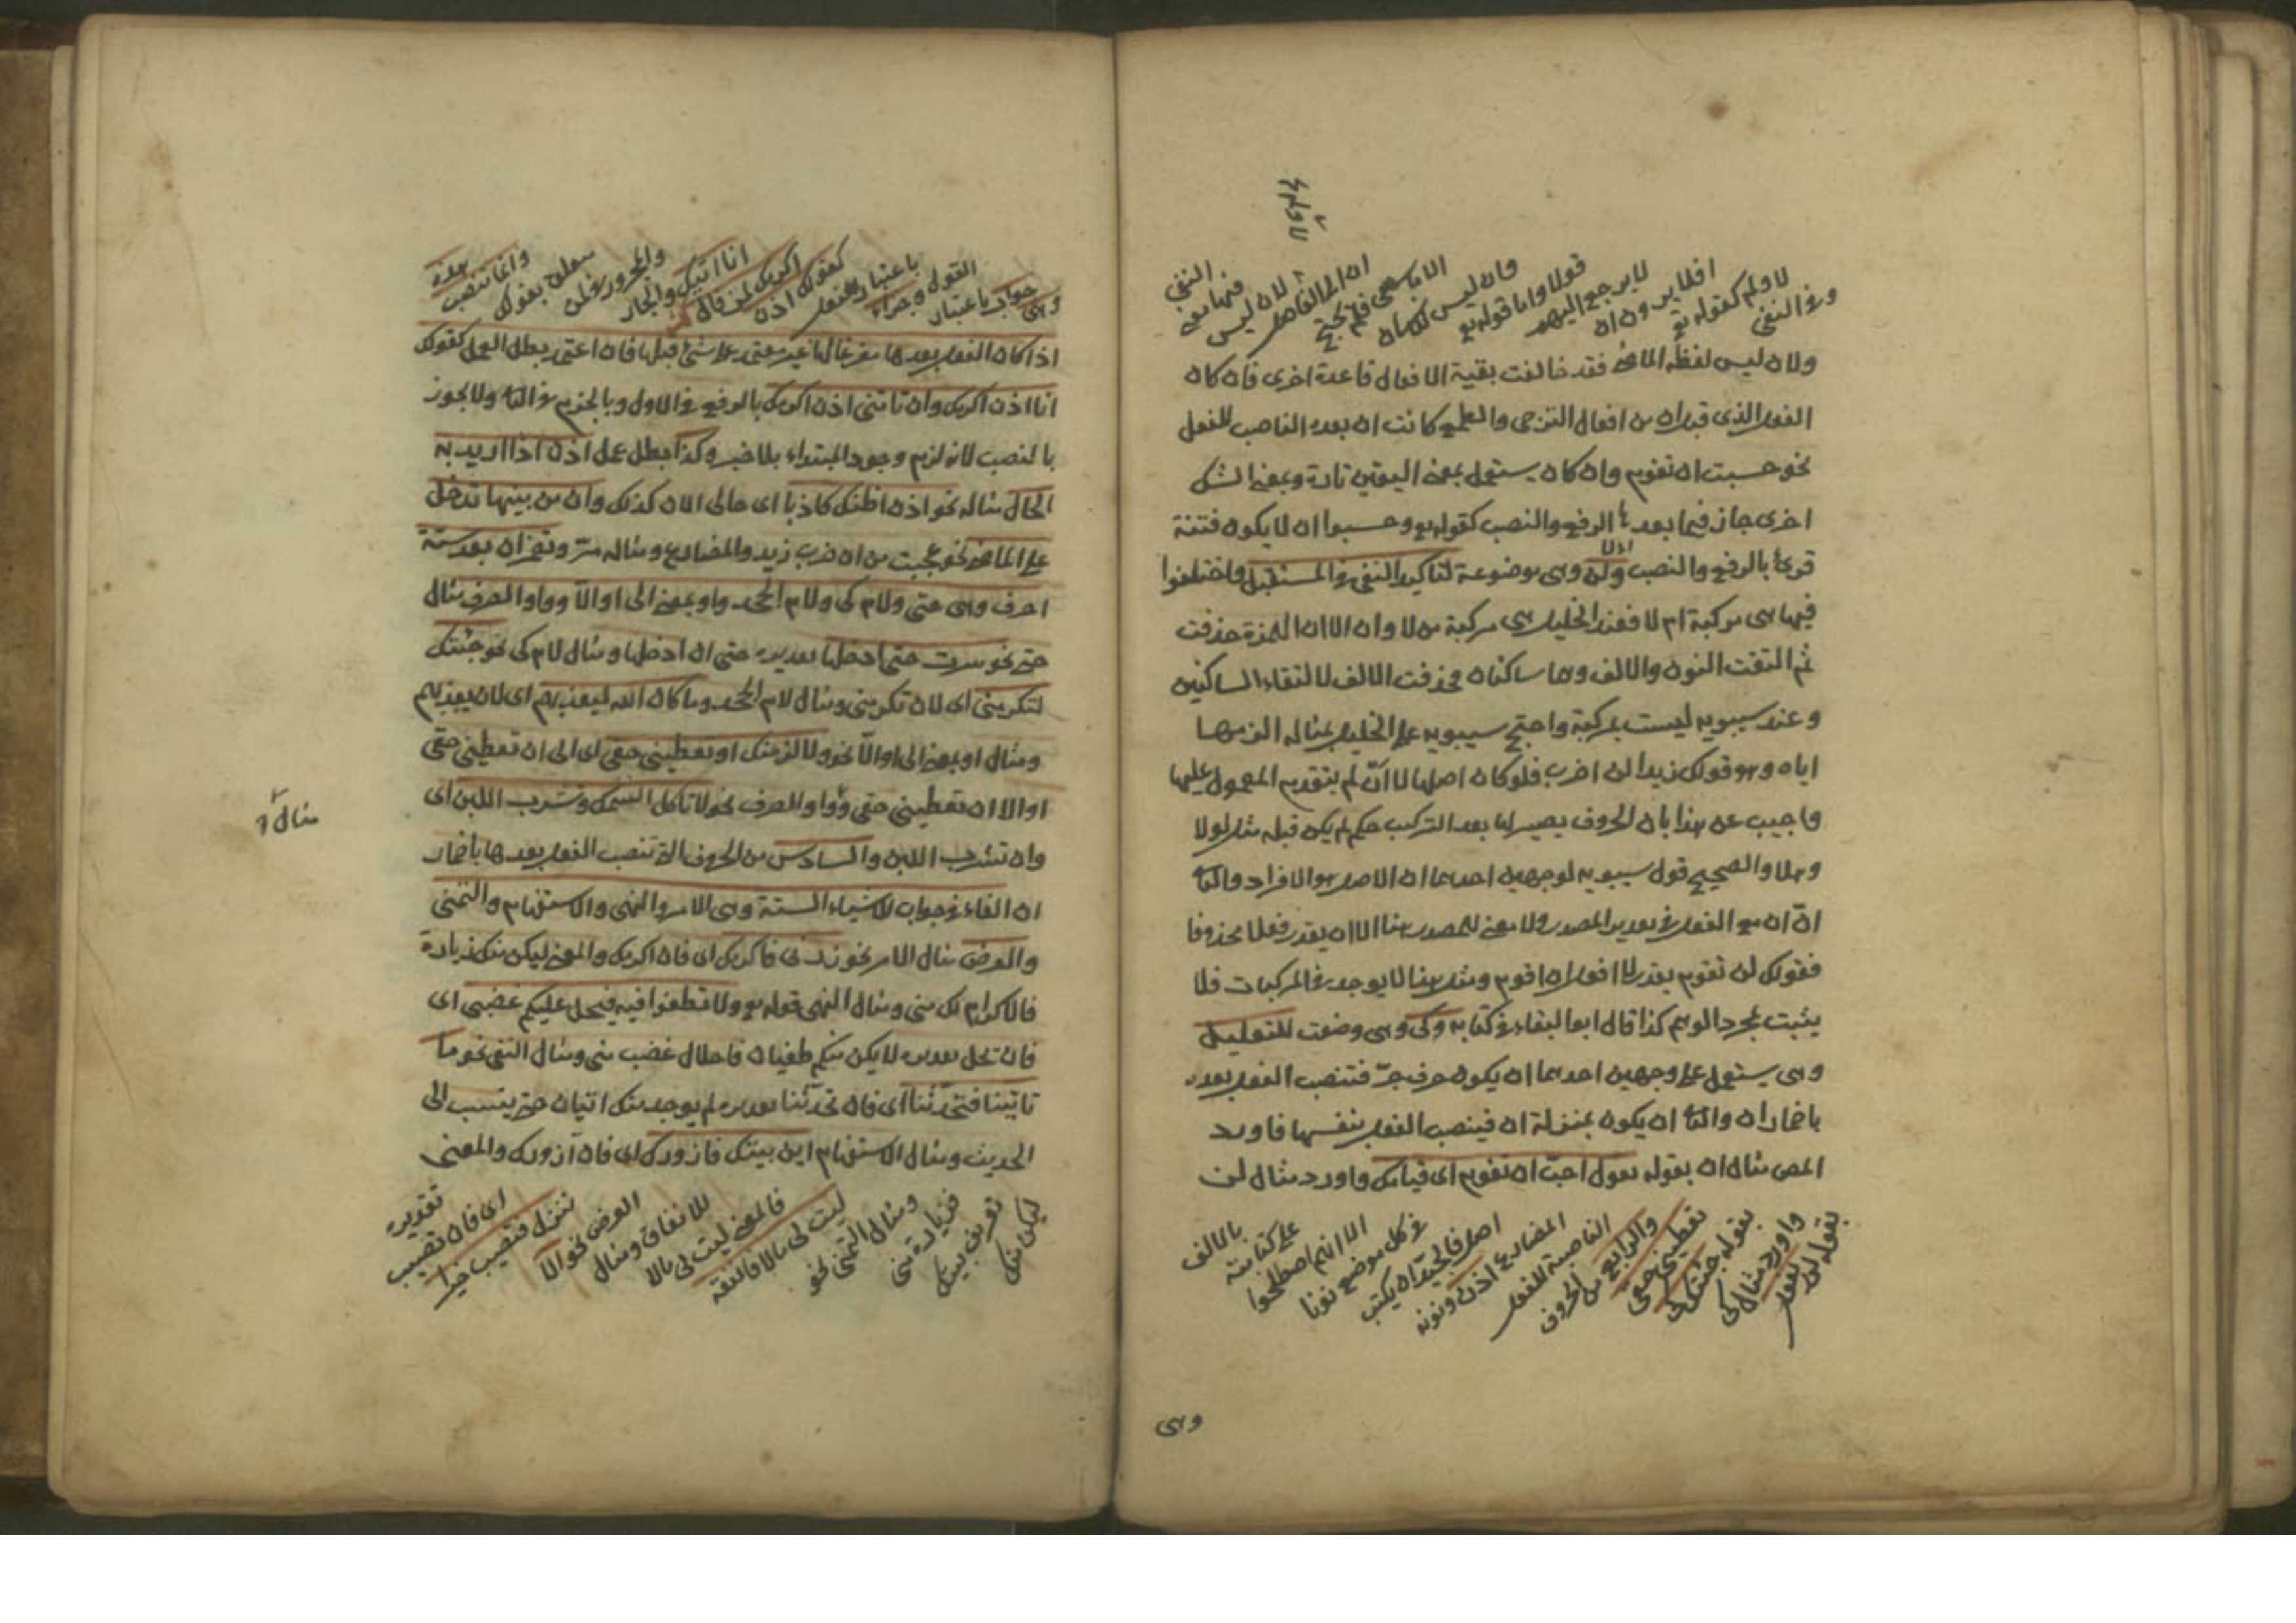 لا ولم كقوله تع
وفي النفي
افلا يرون ان
لا يرجع اليهم
قولا واما قوله تع
وان ليس للانسان
الا ما سعى فلم يحتج
ان الى الفاصل
لان ليس
فيها معنى
النفي
ولان ليس لفظه الماضي فقد خالفت بقية الافعال قاعدة اخرى فان كان
الفعل الذي قبل ان من افعال الترجي والطمع كانت ان بعده الناصب للفعل
نحو حسبت ان تقوم وان كان يستعمل بمعنى اليقين تارة وبمعنى الشك
اخرى جاز فيما بعدها الرفع والنصب كقوله تع وحسبوا ان لا يكون فتنة
قرئ بالرفع والنصب ولن وهي موضوعة لتاكيد النفي في المستقبل واختلفوا
فيها هي مركبة ام لا فعند الخليل هي مركبة من لا وان الا ان الهمزة حذفت
ثم التقت النون والالف وهما ساكنان فحذفت الالف لالتقاء الساكنين
وعند سيبويه ليست بمركبة واحتج سيبويه على الخليل بمثاله الزمها
اياه وهو قولك زيدا لن اضرب فلو كان اصلها لا انّ لم يتقدم المعمول عليها
واجيب عن هذا بان الحروف يصير لها بعد التركيب حكم لم يكن قبله مثل لولا
وهلا والصحيح قول سيبويه لوجهين احدهما ان الاصل هو الافراد والثاني
انّ ان مع الفعل في تقدير المصدر ولا معنى للمصدر هنا الا ان يقدر فعلا محذوفا
فقولك لن تقوم يقدر لا افعل ان اقوم ومثل هذا لا يوجد في المركبات فلا
يثبت بمجرد الوهم كذا قال ابو البقاء في كتابه وكي وهي وضعت للتعليل
وهي يستعمل على وجهين احدهما ان يكون حرف جرّ فتنصب الفعل بعده
باضمار ان والثاني ان يكون بمنزلة ان فينصب الفعل بنفسها فاورد
المص مثال ان بقوله تقول احبّ ان تقوم اي قيامك واورد مثال لن
بقوله لن يفعل
واورد مثال كي
بقوله جئتك كي
تعطيني حقي
والرابع من الحروف
الناصبة للفعل
المضارع اذن ونونه
اصل فالجيّد ان يكتب
في كل موضع نونا
الا انهم اصطلحوا
على كتابته
بالالف
وهي
وهي جواب باعتبار
القول وجزاء
باعتبار الفعل
كقولك اذن
اكرمك لمن قال
انا اتيك والجار
والمجرور في لمن
متعلق بقولك
وانما تنصب
اذا كان الفعل بعدها مفرغا لها غير معتمد على شئ قبلها فان اعتمد بطل العمل كقولك
انا اذن اكرمك وان تاتني اذن اكرمك بالرفع في الاول وبالجزم في الثاني ولا يجوز
بالنصب لانه لزم وجود المبتداء بلا خبر وكذا بطل عمل اذن اذا اريد به
الحال مثاله نحو اذن اظنك كاذبا اي حالي الان كذلك وان من بينها تدخل
على الماضي نحو عجبت من ان ضرب زيد والمضارع ومثاله مرّ وتضمر ان بعد ستة
احرف وهي حتى ولام كي ولام الجحد واو بمعنى الى او الاّ وواو الصرف مثال
حتى نحو سرت حتى ادخلها تقديره حتى ان ادخلها ومثال لام كي نحو جئتك
لتكرمني اي لان تكرمني ومثال لام الجحد وما كان الله ليعذبهم اي لان يعذبهم
ومثال او بمعنى الى او الاّ نحو ولالزمنك او تعطيني حقي اي الى ان تعطيني حقي
او الا ان تعطيني حقي وواو الصرف نحو لا تاكل السمك وتشرب اللبن اي
وان تشرب اللبن والسادس من الحروف التي تنصب الفعل بعدها باضمار
ان الفاء في جواب الاشياء الستة وهي الامر والنهي والاستفهام والتمني
والعرض مثال الامر نحو زرني فاكرمك اي فان اكرمك والمعنى ليكن منك زيارة
فالاكرام لك مني ومثال النهي قوله تع ولا تطغوا فيه فيحل عليكم غضبي اي
فان تحل تقديره لا يكن منكم طغيان فاحلال غضب مني ومثال النفي نحو ما
تاتينا فتحدّثنا اي فان تحدّثنا تقديره لم يوجد منك اتيان حتى ينتسب الى
الحديث ومثال الاستفهام اين بيتك فازورك اي فان ازورك والمعنى
ليكن منك
تعريف بيتك
فزيارة مني
ومثال التمني نحو
ليت لي مالا فانفقه
فالمعنى ليت لي مالا
للانفاق ومثال
العرض نحو الا
تنزل فتصيب خيرا
اي فان تصيب
تقديره
مثال